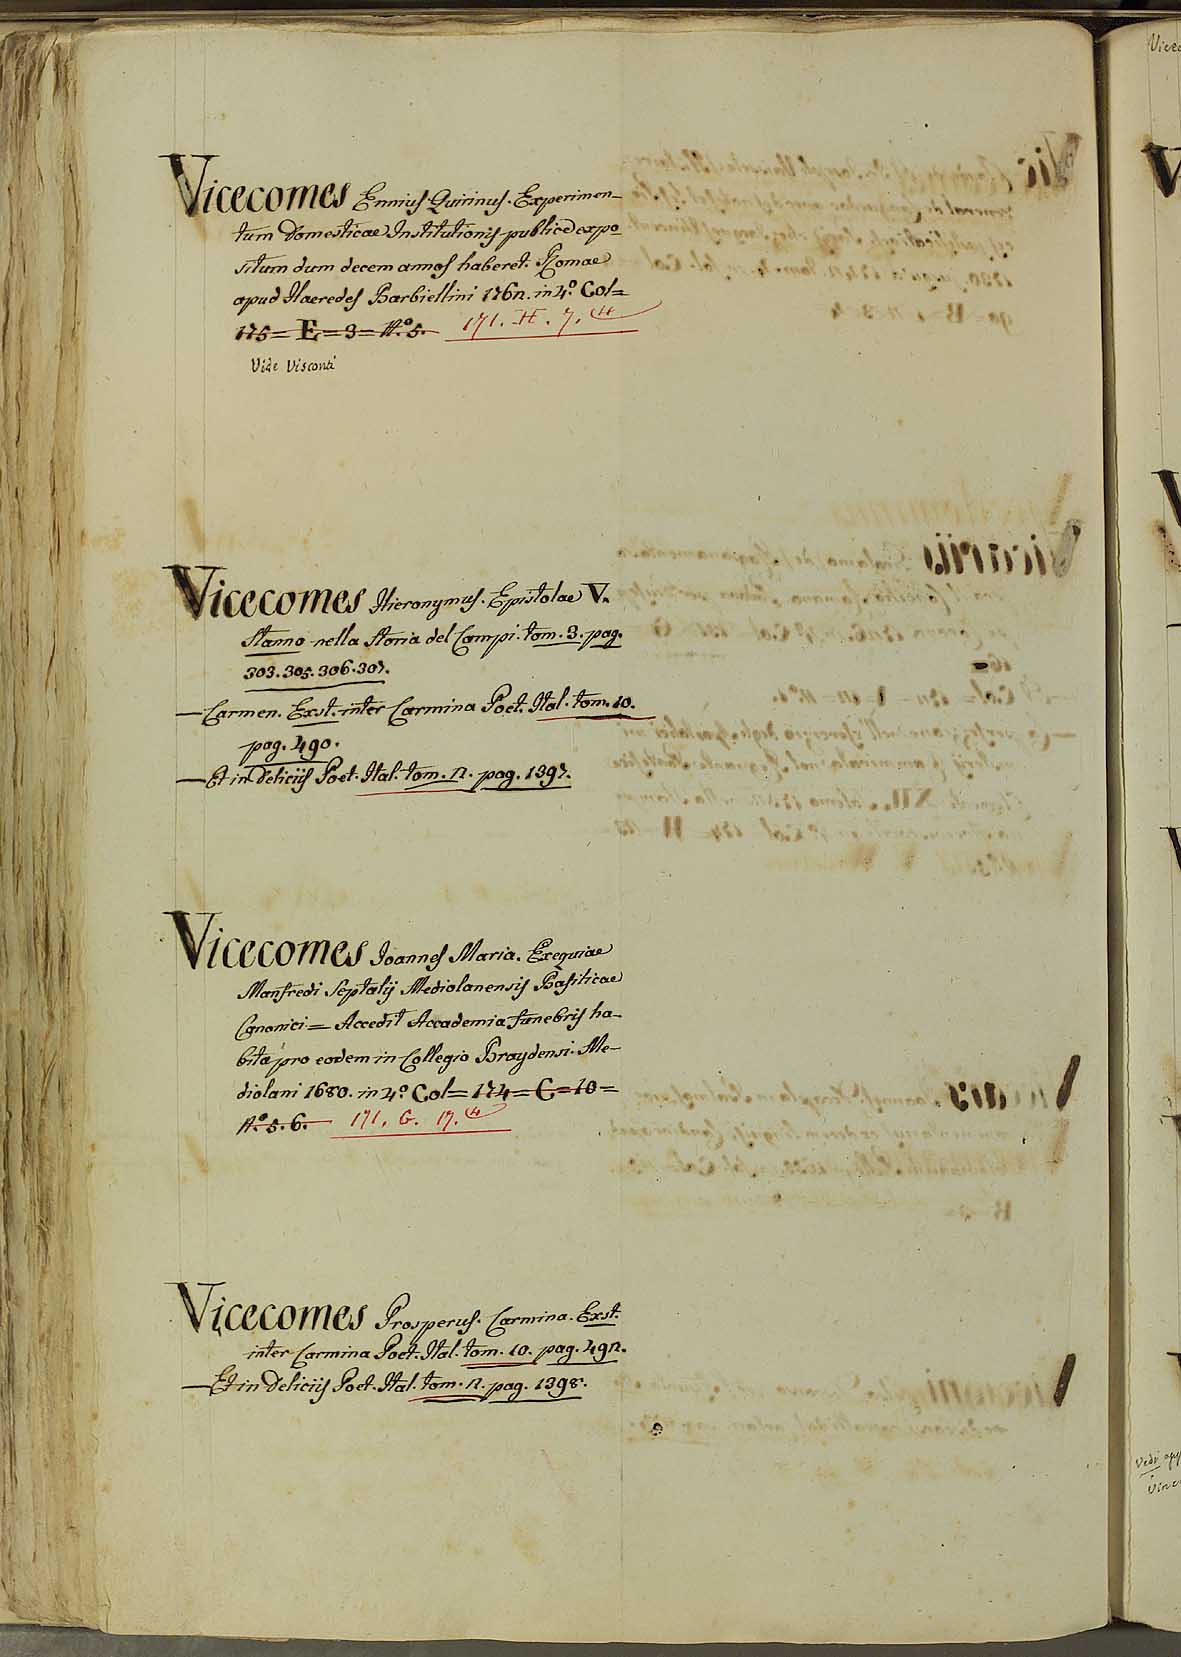 Vicecomes Ennius Quirinus. Experimen-
tum domesticae Institutionis publicè expo-
situm dum decem annos haberet. Romae
apud Haeredes Barbiellini 1762. in 4.° Col=
175=E=3=N.°5. 171. H. 7.
Vide Visconti
Vicecomes Hieronymus. Epistolae V.
Stanno nella Storia del Campi. tom. 3. pag.
303. 305. 306. 307.
—Carmen. Exst. inter Carmina Poet. Ital. tom. 10.
pag. 490.
—Et in Deliciis Poet. Ital. tom. 2. pag. 1397.
Vicecomes Joannes Maria. Exequiae
Manfredi Septalij Mediolanensis Basilicae
Canonici= Accedit Accademia funebris ha-
bita pro eodem in Collegio Braydensi. Me-
diolani 1680. in 4.° Col=174=C=10=
N.°5.6. 171. G. 17.
Vicecomes Prosperus. Carmina. Exst.
inter Carmina Poet. Ital. tom. 10. pag. 492.
—Et in Deliciis Poet. Ital. tom. 2. pag. 1398.